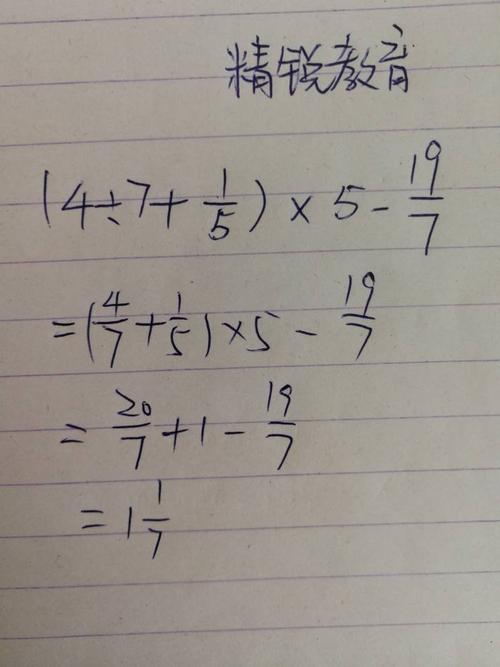 精锐教育
(4÷7+1/5)×5-19/7
=(4/7+1/5)×5-19/7
=20/7+1-19/7
=1 1/7